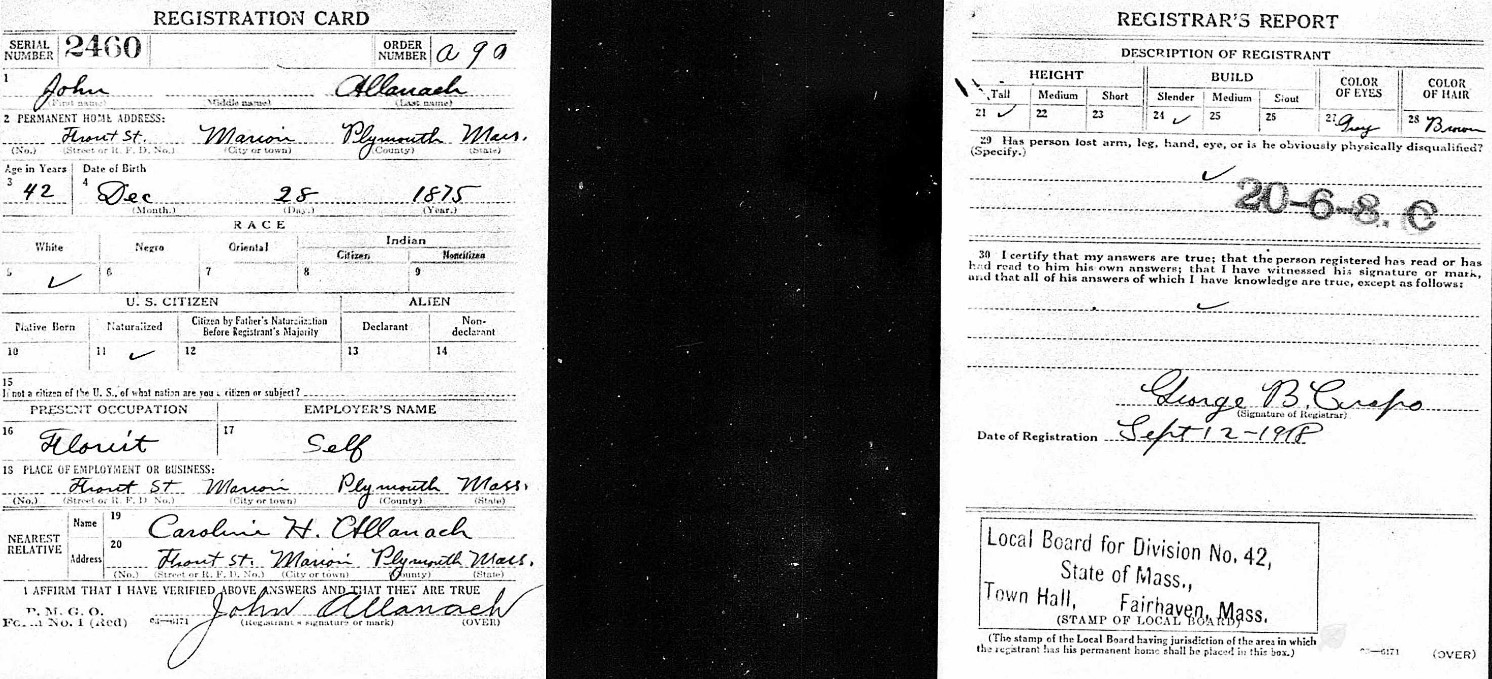 REGISTRATION CARD
SERIAL NUMBER 2460 ORDER NUMBER a 90
1 John Allanach
(First name) (Middle name) (Last name)
2 PERMANENT HOME ADDRESS:
Front St. Marion Plymouth Mass.
(No.) (Street or R. F. D. No.) (City or town) (County) (State)
Age in Years Date of Birth
3 42 4 Dec 28 1875
(Month.) (Day.) (Year.)
RACE
White Negro Oriental Indian
Citizen Noncitizen
5 ✓ 6 7 8 9
U. S. CITIZEN ALIEN
Native Born Naturalized Citizen by Father's Naturalization Before Registrant's Majority Declarant Non-declarant
10 11 ✓ 12 13 14
15
If not a citizen of the U. S., of what nation are you a citizen or subject?
PRESENT OCCUPATION EMPLOYER'S NAME
16 Florist 17 Self
18 PLACE OF EMPLOYMENT OR BUSINESS:
Front St Marion Plymouth Mass.
(No.) (Street or R. F. D. No.) (City or town) (County) (State)
NEAREST RELATIVE Name 19 Caroline H. Allanach
Address 20 Front St. Marion Plymouth Mass.
(No.) (Street or R. F. D. No.) (City or town) (County) (State)
I AFFIRM THAT I HAVE VERIFIED ABOVE ANSWERS AND THAT THEY ARE TRUE
P. M. G. O.
Form No. 1 (Red) 03—6171 John Allanach
(Registrant's signature or mark) (OVER)
REGISTRAR'S REPORT
DESCRIPTION OF REGISTRANT
HEIGHT BUILD COLOR OF EYES COLOR OF HAIR
Tall Medium Short Slender Medium Stout
21 ✓ 22 23 24 ✓ 25 26 27 Gray 28 Brown
29 Has person lost arm, leg, hand, eye, or is he obviously physically disqualified?
(Specify.)
✓
20-6-8. C
30 I certify that my answers are true; that the person registered has read or has
had read to him his own answers; that I have witnessed his signature or mark,
and that all of his answers of which I have knowledge are true, except as follows:
✓
George B.
(Signature of Registrar)
Date of Registration Sept 12-1918
Local Board for Division No. 42,
State of Mass.,
Town Hall, Fairhaven, Mass.
(STAMP OF LOCAL BOARD)
(The stamp of the Local Board having jurisdiction of the area in which
the registrant has his permanent home shall be placed in this box.)
03—6171 (OVER)